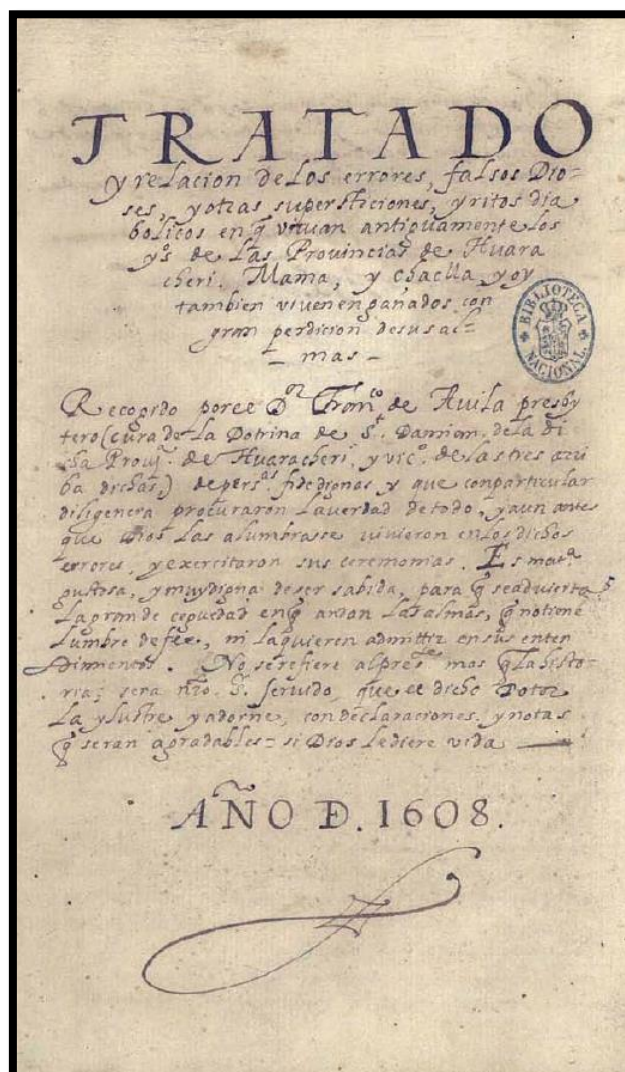 TRATADO
y relacion de los errores, falsos Dio=
ses, y otras supersticiones, y ritos dia
bolicos en q̃ viuian antiguamente los
yˢ. de las Prouinciaˢ de Huara
cheri. Mama, y chaclla y oy
tambien viuen engañados con
gran perdicion de sus al-
- mas -
BIBLIOTECA
NACIONAL
Recogido por el Dᵒʳ Franᶜᵒ de Auila presby
tero (cura de la Dotrina de Sᵗ. Damian, de la di
cha Prouᵃ. de Huaracheri, y vicᵒ. de las tres arri
ba dichas,) de persᵃˢ fidedignas y que con particular
diligencia procuraron la verdad de todo, y aun antes
que Dios las alumbrasse vivieron en los dichos
errores, y exercitaron sus ceremonias. Es matᵃ
gustosa, y muy digna de ser sabida, para q̃ se aduierta
la grande ceguedad en q̃ andan las almas, q̃ no tienẽ
lumbre de fee, ni la quieren admittir en sus enten
dimientos. No se refiere al presᵗᵉ mas q̃ la histo-
ria; sera nr̃o. S. seruido, que el dicho Dotor
la ylustre y adorne, con declaraciones. y notas
q̃ seran agradables = si Dios le diere vida —
AÑO D. 1608.